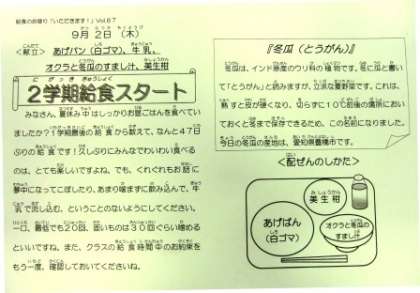 給食のお便り「いただきます！」Vol.67
９月２日（木）
<献立> あげパン（白ゴマ）、牛乳、
オクラと冬瓜のすまし汁、美生柑
２学期給食スタート
みなさん、夏休み中はしっかりお昼ごはんを食べてい
ましたか？１学期最後の給食から数えて、なんと４７日
ぶりの給食です！久しぶりにみんなでわいわい食べる
のは、とても楽しいですよね。でも、くれぐれもお話に
夢中になってこぼしたり、あまり噛まずに飲み込んで、牛
乳で流し込む、ということのないようにしてください。
一口、最低でも２０回、固いものは３０回ぐらい噛める
といいですね。また、クラスの給食時間中のお約束を
もう一度、確認しておいてくださいね。
『冬瓜（とうがん）』
冬瓜は、インド原産のウリ科の植物です。冬に瓜と書い
て「とうがん」と読みますが、立派な夏野菜です。これは、
熟すと皮が硬くなり、切らずに１０℃前後の場所におい
ておくと冬まで保存できるため、この名前になりました。
今日の冬瓜の産地は、愛知県豊橋市です。
<配ぜんのしかた>
美生柑
あげぱん
（白ゴマ）
オクラと冬瓜の
すまし汁